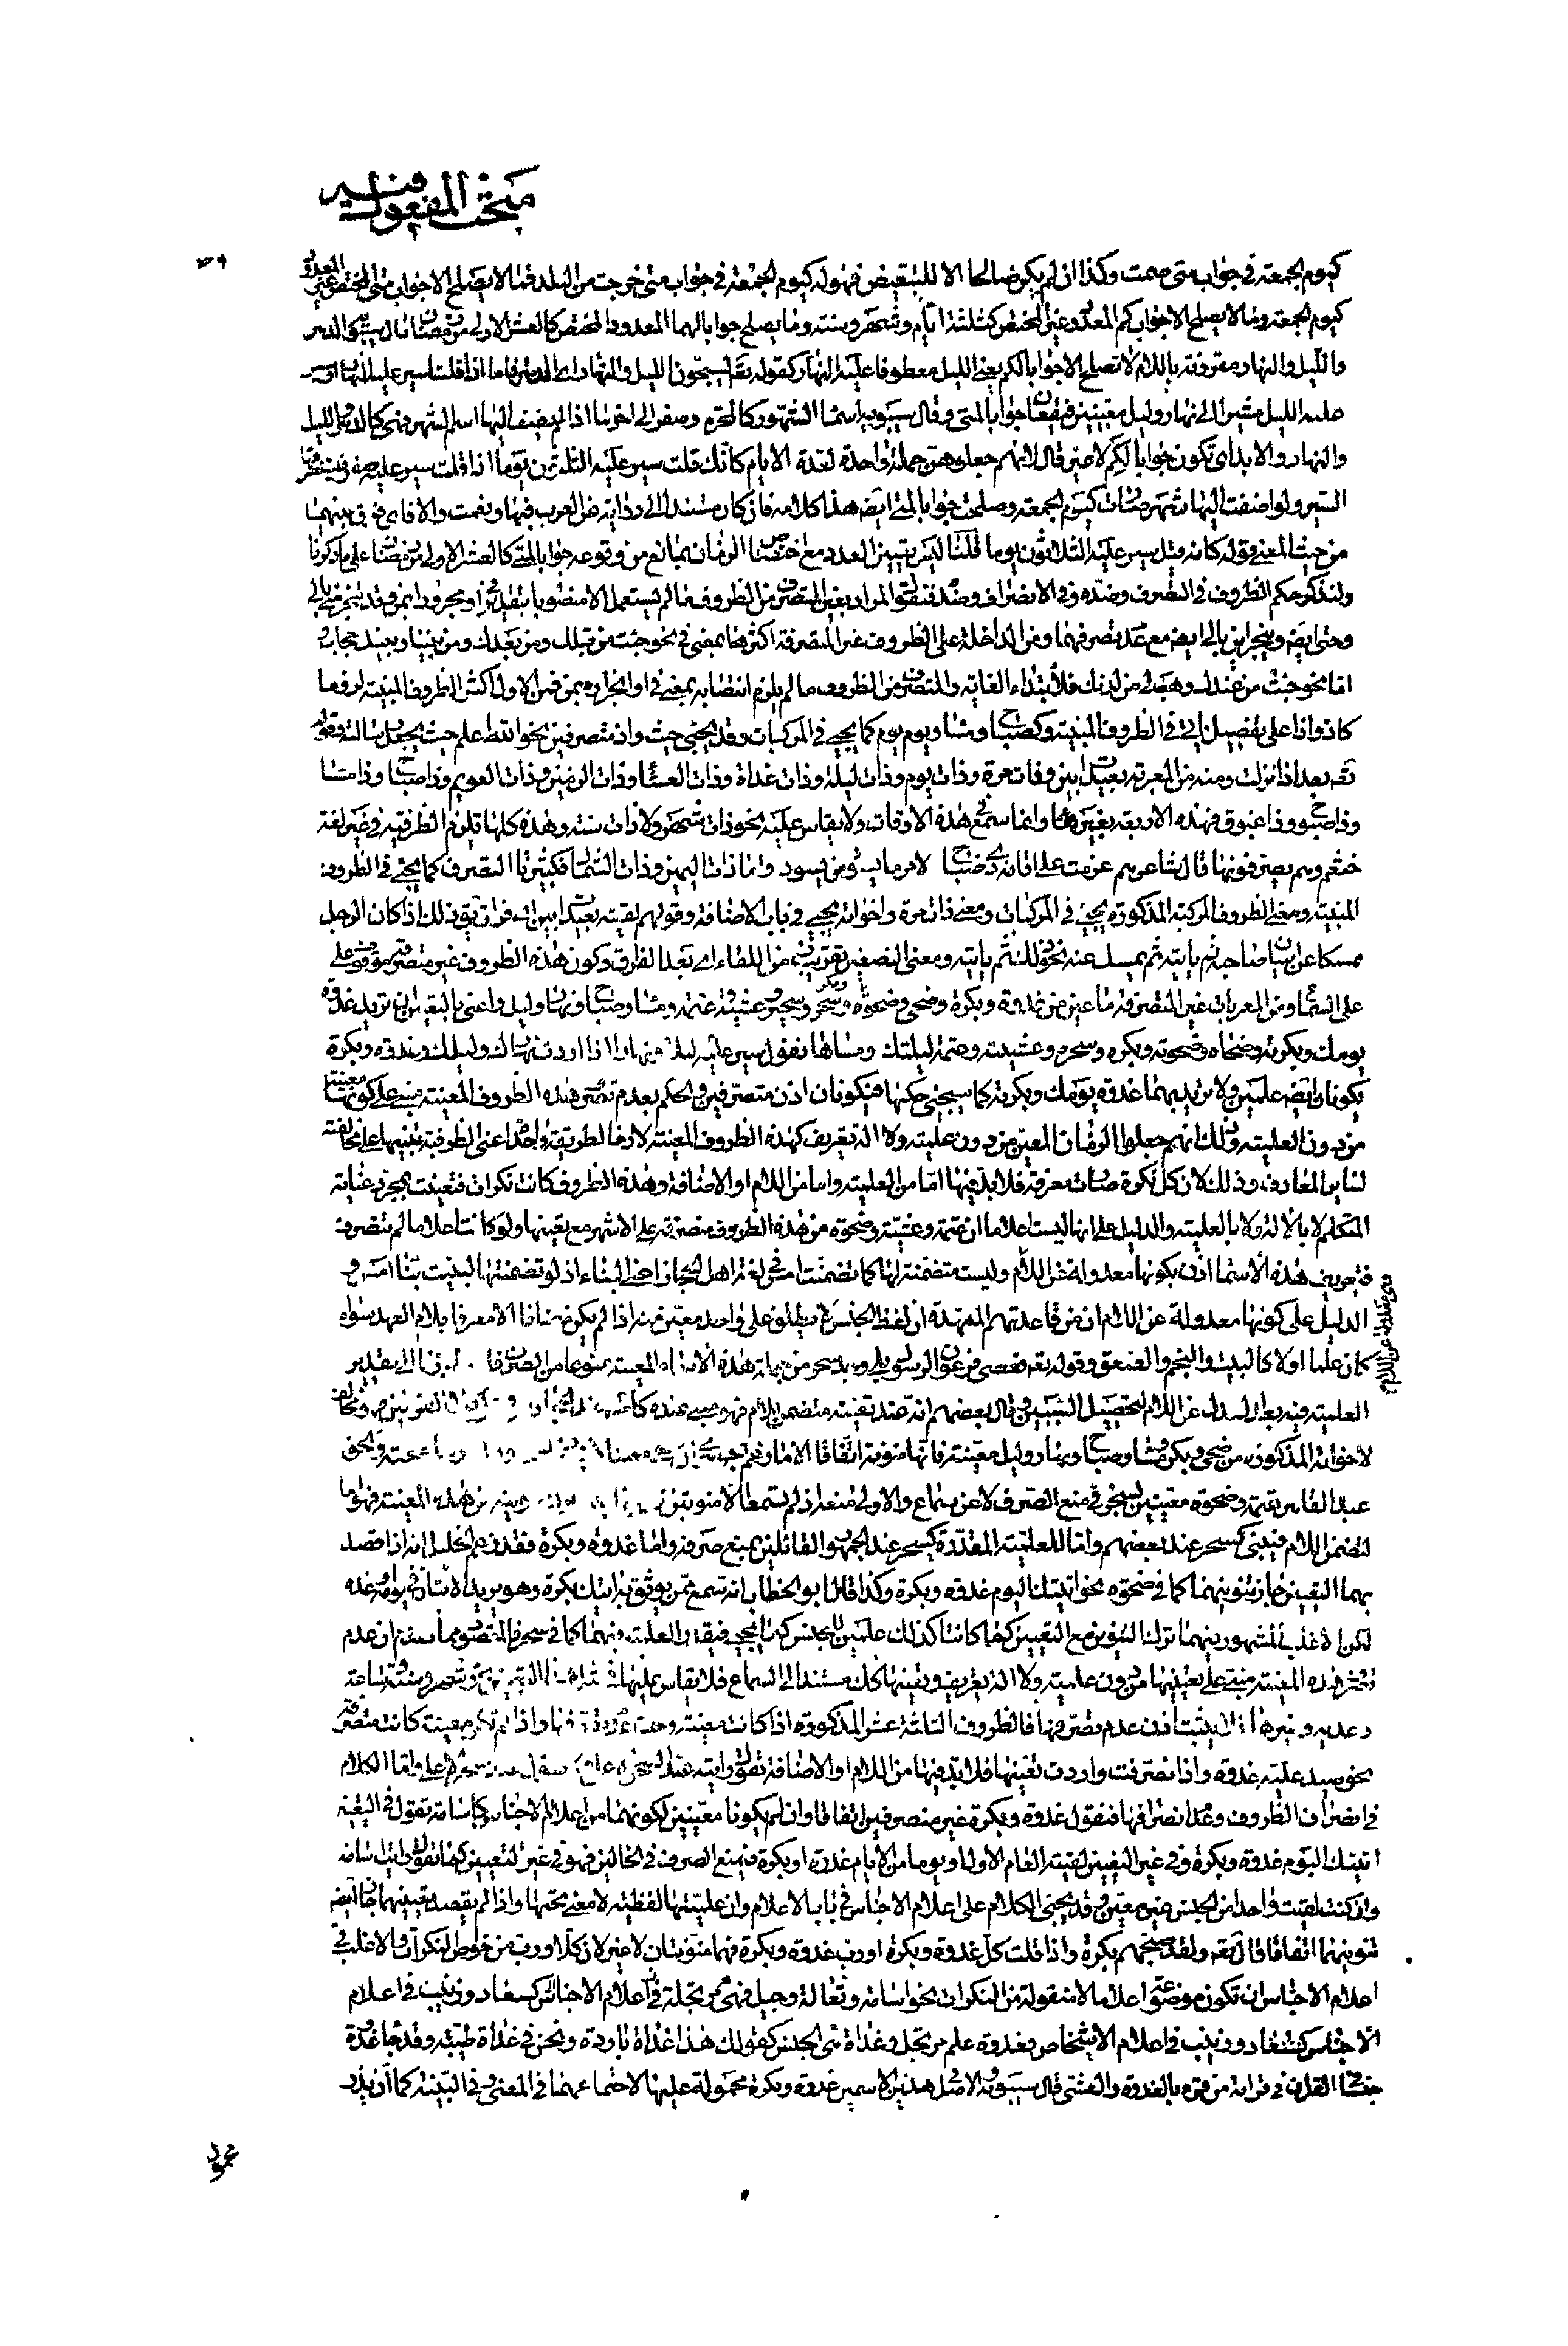 مبحث المفعول فيه
كيوم الجمعة في جواب متى صمت وكذا ان لم يكن صالحا الا للتبعيض فهو له كيوم الجمعة في جواب متى خرجت من البلد فما لا يصلح الا جواب متى المختص غير المعدود
كيوم الجمعة وما لا يصلح الا جواب كم المعدود غير المختص كثلثة ايام وشهر وسنة وما يصلح جوابا لهما المعدود المختص كالعشر الاول من رمضان قال سيبويه الدهر
والليل والنهار مقرونة باللام لا تصلح الا جوابا لكم يعني الليل معطوفا عليه النهار كقوله تعالى يسبحون الليل والنهار اي الدهر فاما اذا قلت سير عليه النهار او سير
عليه الليل مشيرا الى نهار وليل معينين فيقعان جوابا لمتى وقال سيبويه اسماء الشهور كالمحرم وصفر الى اخرها اذا لم يضف اليها اسم الشهر فهي كالدهر والليل
والنهار والابد اي تكون جوابا لكم لا غير قال لانهم جعلوهن جملة واحدة لعدة الايام كانك قلت سير عليه الثلثون يوما اذا قلت سير عليه صفر
السير ولو اضفت اليها شهر صارت كيوم الجمعة وصلحت جوابا لمتى ايضا هذا كلامه فان كان مستندا الى رواية عن العرب فبها ونعمت والا فاي فرق بينهما
من حيث المعنى قوله كانه قيل سير عليه الثلاثون يوما قلنا ليس تعيين العدد مع اختصاص الزمان بمانع من وقوعه جوابا لمتى كالعشر الاول من رمضان على ما ذكرنا
ولنذكر حكم الظروف في التصرف وضده وفي الانصراف وضده فنقول المراد بغير المتصرف من الظروف ما لم يستعمل الا منصوبا بتقدير في او مجرورا بمن وقد ينجر متى بالى
وحتى ايضا وينجر اين بالى ايضا مع عدم تصرفهما ومن الداخلة على الظروف غير المتصرفة اكثرها بمعنى في نحو جئت من قبلك ومن بعدك ومن بيننا وبينك حجاب
اما نحو جئت من عندك وهب لي من لدنك فلابتداء الغاية والمتصرف من الظروف ما لم يلزم انتصابه بمعنى في او انجراره بمن فمن الاول اكثر الظروف المبنية لزوما
كاذ واذا على تفصيل ياتي في الظروف المبنية وكصباح مساء ويوم يوم كما يجيء في المركبات وقد يجيء حيث واذ متصرفين نحو الله اعلم حيث يجعل رسالته وقوله
تعالى بعد اذ انزلت ومنه من المعربة بعيدات بين وذات مرة وذات يوم وذات ليلة وذات غداة وذات العشاء وذات الزمين وذات العويم وذا صباح وذا مساء
وذا صبوح وذا غبوق فهذه الاربعة بغير هاء وانما سمع في هذه الاوقات ولا يقاس عليه نحو ذات شهر ولا ذات سنة وهذه كلها تلزم الظرفية في غير لغة
خثعم وهم يصرفونها قال شاعرهم عزمت على اقامة ذي صباح لامر ما يسود من يسود واما ذات اليمين وذات الشمال فكثيرتا التصرف كما يجيء في الظروف
المبنية ومعنى الظروف المركبة المذكورة يجيء في المركبات ومعنى ذات مرة واخواته يجيء في باب الاضافة وقولهم لقيته بعيدات بين اي فراق يق ذلك اذا كان الرجل
ممسكا عن اتيان صاحبه ثم ياتيه ثم يمسك عنه نحو ذلك ثم ياتيه ومعنى التصغير تقريب من اللقاء اي بعد الفراق وكون هذه الظروف غير متصرفة موقوف على
على السماع ومن المعربات غير المتصرفة ما عين من غدوة وبكرة وضحى وضحوة وبكر وسحر وسحير وعشية وعتمة ومساء وصباح ونهار وليل واعني بالتعيين ان تريد غدوة
يومك وبكرته وضحاه وضحوته وبكره وسحره وعشيته وعتمة ليلتك ومساءها تقول سير عليه ليلا ونهارا اذا اردت نهارك وليلك وغدوة وبكرة
يكونان ايضا علمين ولا تريد بهما غدوة يومك وبكرته كما سيجيء حكمها فيكونان اذن متصرفين والحكم بعدم تصرف هذه الظروف المعينة مبني على كونها معينة
من دون العلمية وذلك انهم جعلوا الزمان المعين من دون علمية ولا الة تعريف كهذه الظروف المعينة لازما لطريقة واحدة اعني الظرفية تنبيها على مخالفته
لسائر المعارف وذلك لان كل نكرة صارت معرفة فلا بد فيها اما من العلمية واما من اللام او الاضافة وهذه الظروف كانت نكرات فتعينت بمجرد عناية
المتكلم لا بالالة ولا بالعلمية والدليل على انها ليست اعلاما ان عتمة وعشية وضحوة من هذه الظروف منصرفة على الاشهر مع تعينها ولو كانت اعلاما لم تنصرف
فتعريف هذه الاسماء اذن بكونها معدولة عن اللام وليست متضمنة لها كما تضمنت امس في لغة اهل الحجاز اعني البناء اذ لو تضمنتها لبنيت بناء امس و
الدليل على كونها معدولة عن اللام ان من قاعدتهم الممهدة ان لفظ الجنس يطلق على واحد معين منه اذا لم يكن مضافا الا معرفا بلام العهد سواء
كان علما اولا كالبيت والنجم والصعق وقوله تعالى فعصى فرعون الرسول ولم يوجد سحر من جملة هذه الاسماء المعينة ممنوعا من الصرف
العلمية فيه بعد العدل عن اللام لتحصيل السببين وقال بعضهم انه عند تعينه متضمن للام فهو مبني عنده
لاخواته المذكورة من ضحى وبكر ومساء وصباح ونهار وليل معينة فانها منونة اتفاقا الا ما
عبد القاهر عتمة وضحوة معينتين كسحر في منع الصرف لا عن سماع والاولى منعه اذ لم تسمعا الا منونتين
لتضمن اللام فيبنى كسحر عند بعضهم واما للعلمية المقدرة كسحر عند الجمهور القائلين بمنع صرفه واما غدوة وبكرة فقد زعم الخليل انه اذا قصد
بهما التعيين جاز تنوينهما كما في ضحوة نحو اتيتك اليوم غدوة وبكرة وكذا قال ابو الخطاب انه سمع ممن يوثق به اتيتك بكرة وهو يريد الاتيان في يومه او غده
لكن الاغلب المشهور فيهما ترك التنوين مع التعيين كما كانتا كذلك علمين للجنس كما يجيء فيقدر العلمية فيهما كما في سحر فالمقصود مما تقدم ان عدم
تصرف هذه المعينة مبني على تعيينها من دون علمية ولا الة تعريف وتعينها كذلك مستند الى السماع فلا يقاس عليها
فالظروف الثلثة عشر المذكورة اذا كانت معينة واذا لم تكن معينة كانت متصرفة
نحو صيد عليه غدوة واذا تصرفت واردت تعينها فلا بد فيها من اللام او الاضافة تقول رايته عند السحر واما الكلام
في انصراف الظروف وعدم انصرافها فنقول غدوة وبكرة غير منصرفين اتفاقا وان لم يكونا معينين لكونهما من اعلام الاجناس كاسامة تقول في التعيين
اتيتك اليوم غدوة وبكرة وفي غير التعيين لقيته العام الاول او يوما من الايام غدوة او بكرة فيمنع الصرف في الحالين فهو في غير التعيين كما تقول رايت اسامة
وان كنت لقيت واحدا من الجنس غير معين وقد يجيء الكلام على اعلام الاجناس في باب الاعلام وان علميتها لفظية لا معنى تحتها واذا لم يقصد تعيينهما جاز ايضا
تنوينهما اتفاقا قال تعالى ولقد صبحهم بكرة واذا قلت كل غدوة وبكرة او رب غدوة وبكرة فهما منونتان لا غير لان كلا ورب من خواص النكرات والاغلب في
اعلام الاجناس ان تكون موضوعة اعلاما لا منقولة من النكرات نحو اسامة وثعالة وجيل فهي مرتجلة في اعلام الاجناس كسعاد وزينب في اعلام
الاجناس كسعاد وزينب في اعلام الاشخاص وغدوة علم مرتجل وغداة هي الجنس كقولك هذا غداة باردة ونحن في غداة طيبة وقد جاء غدوة
جنسا القران في قراءة من قرء بالغدوة والعشي قال سيبويه الاصل في هذين الاسمين غدوة وبكرة محمولة عليها لاجتماعهما في المعنى وفي البنية كما ان يذر
محمول